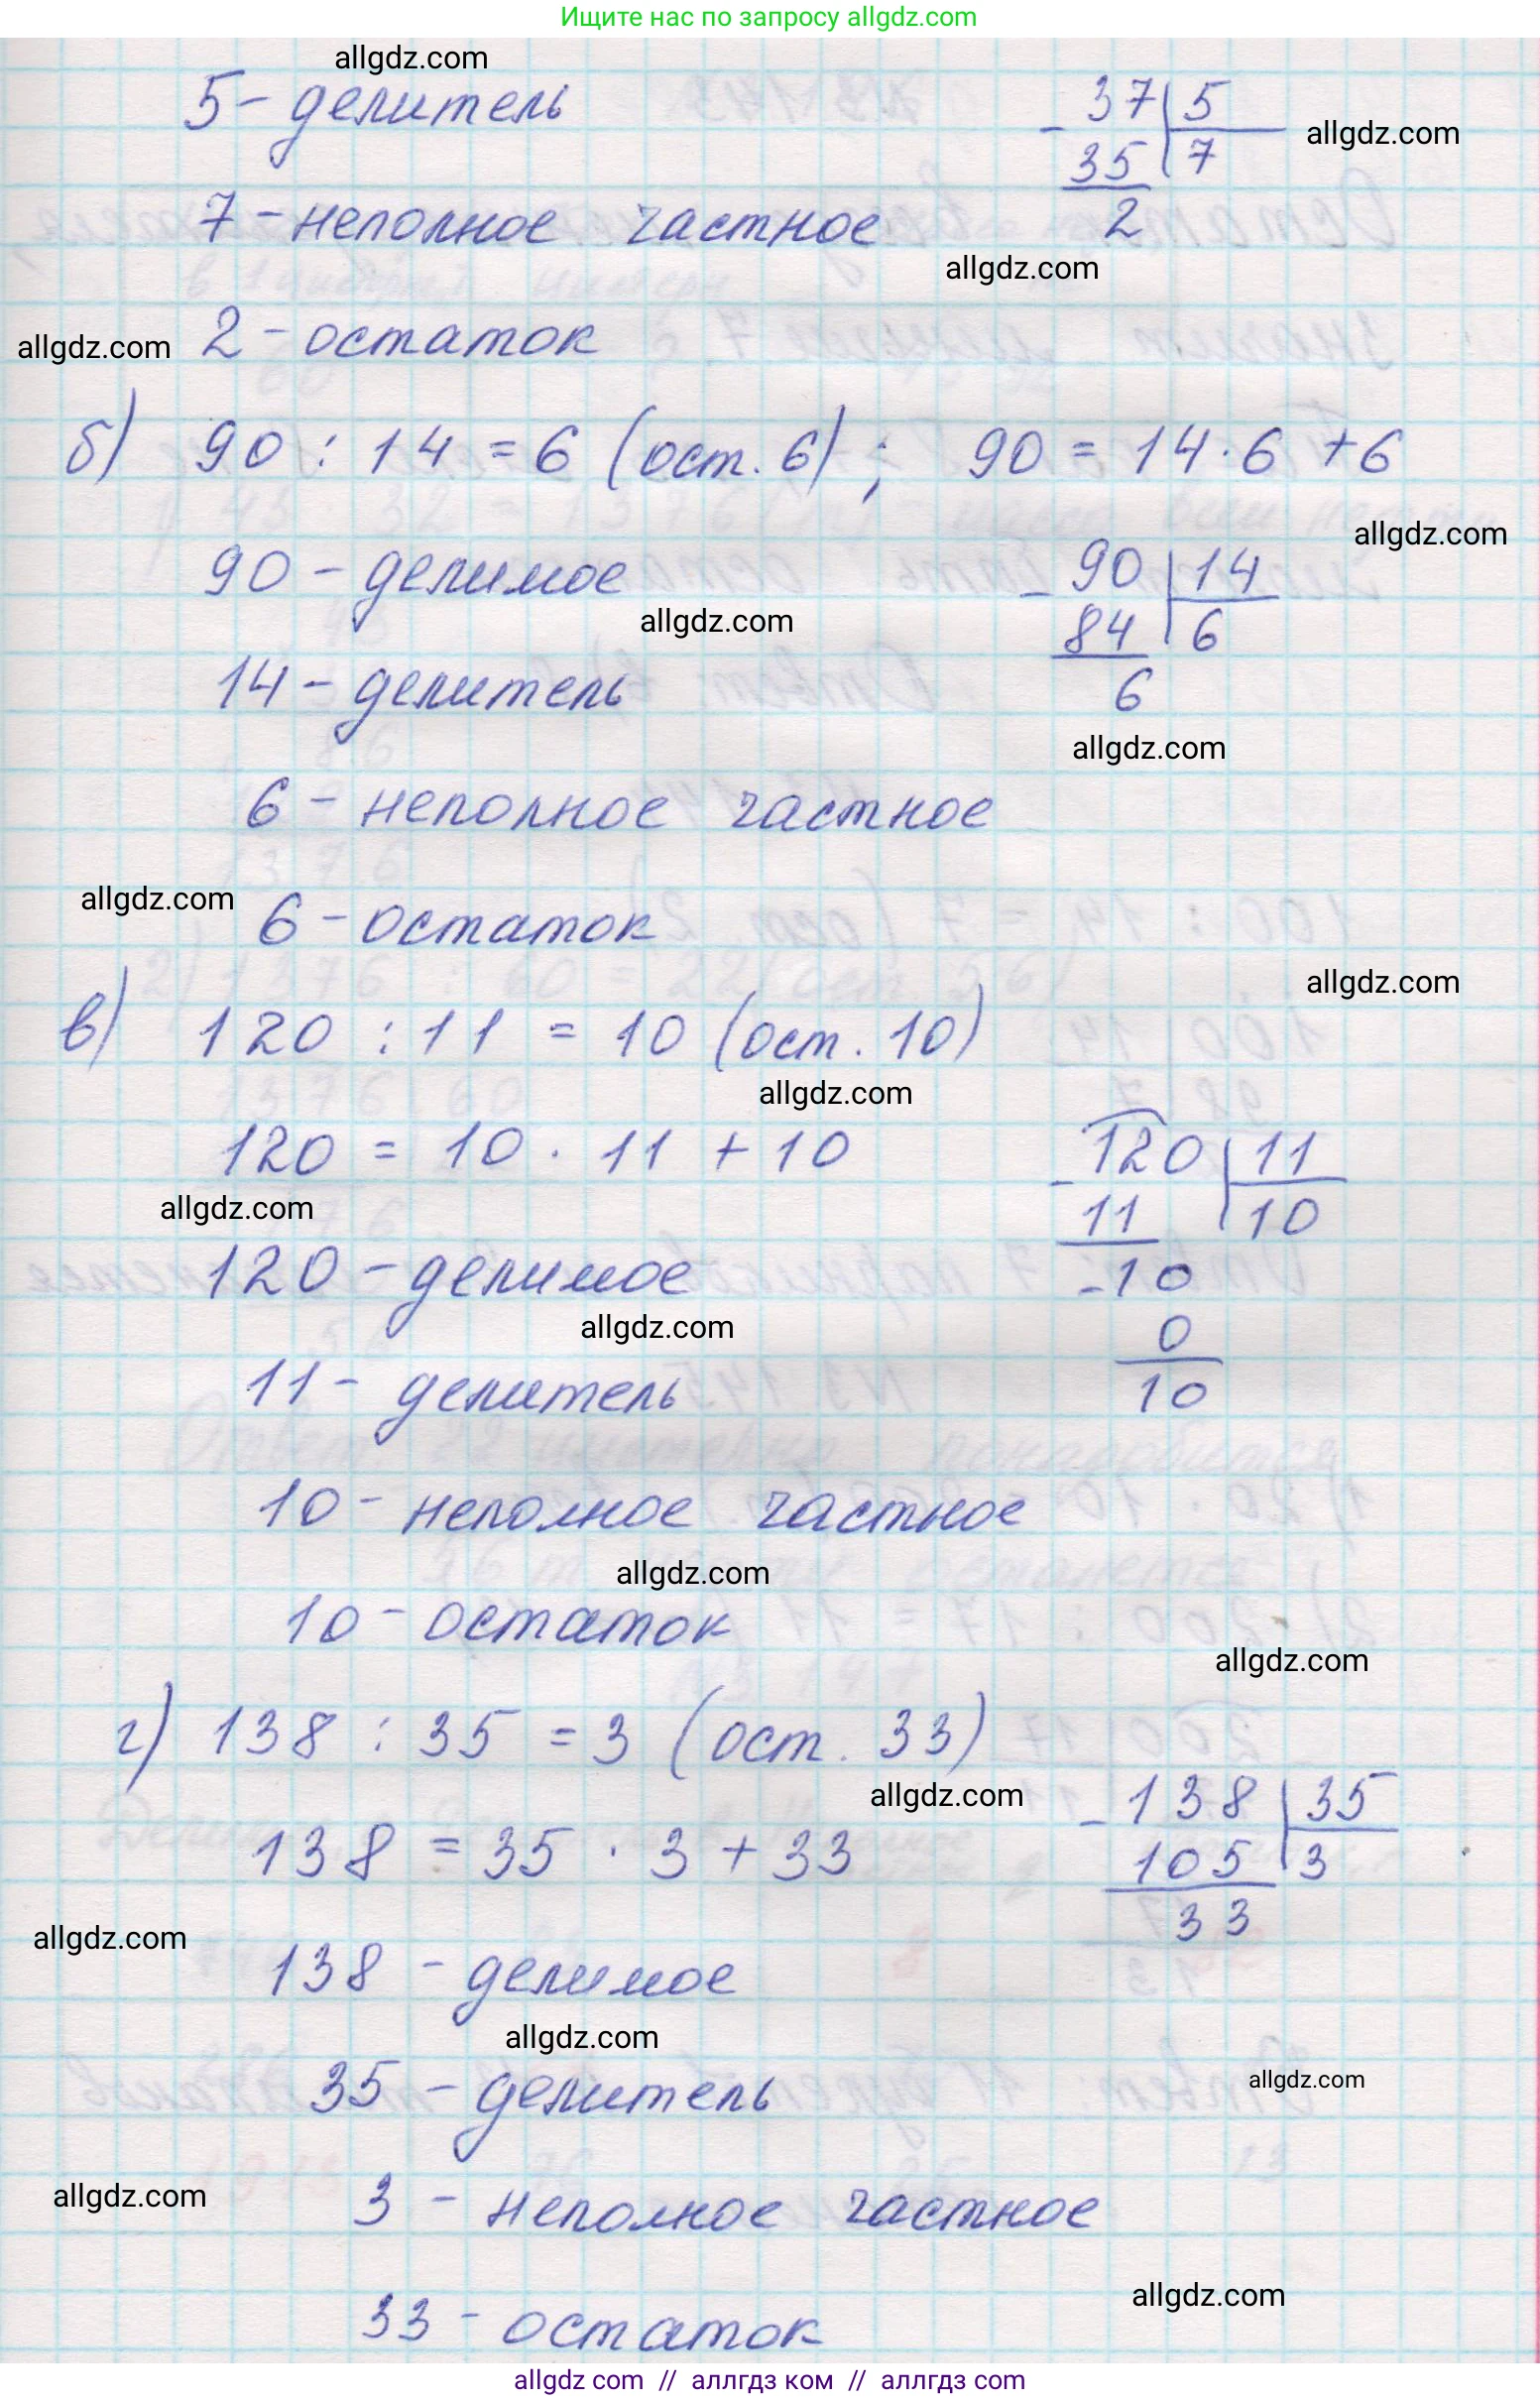 Ищите нас по запросу allgdz.com
allgdz.com
5 - делитель
37 | 5
- 35 | 7
2
allgdz.com
7 - неполное частное
allgdz.com
allgdz.com
2 - остаток
б) 90 : 14 = 6 (ост. 6) ; 90 = 14 · 6 + 6
allgdz.com
90 - делимое
- 90 | 14
84 | 6
6
allgdz.com
14 - делитель
allgdz.com
6 - неполное частное
allgdz.com
6 - остаток
allgdz.com
в) 120 : 11 = 10 (ост. 10)
allgdz.com
120 = 10 · 11 + 10
- 120 | 11
11 | 10
- 10
0
10
allgdz.com
120 - делимое
allgdz.com
11 - делитель
10 - неполное частное
allgdz.com
10 - остаток
allgdz.com
г) 138 : 35 = 3 (ост. 33)
allgdz.com
- 138 | 35
105 | 3
33
138 = 35 · 3 + 33
allgdz.com
138 - делимое
allgdz.com
35 - делитель
allgdz.com
allgdz.com
3 - неполное частное
allgdz.com
33 - остаток
allgdz com // аллгдз ком // аллгдз com